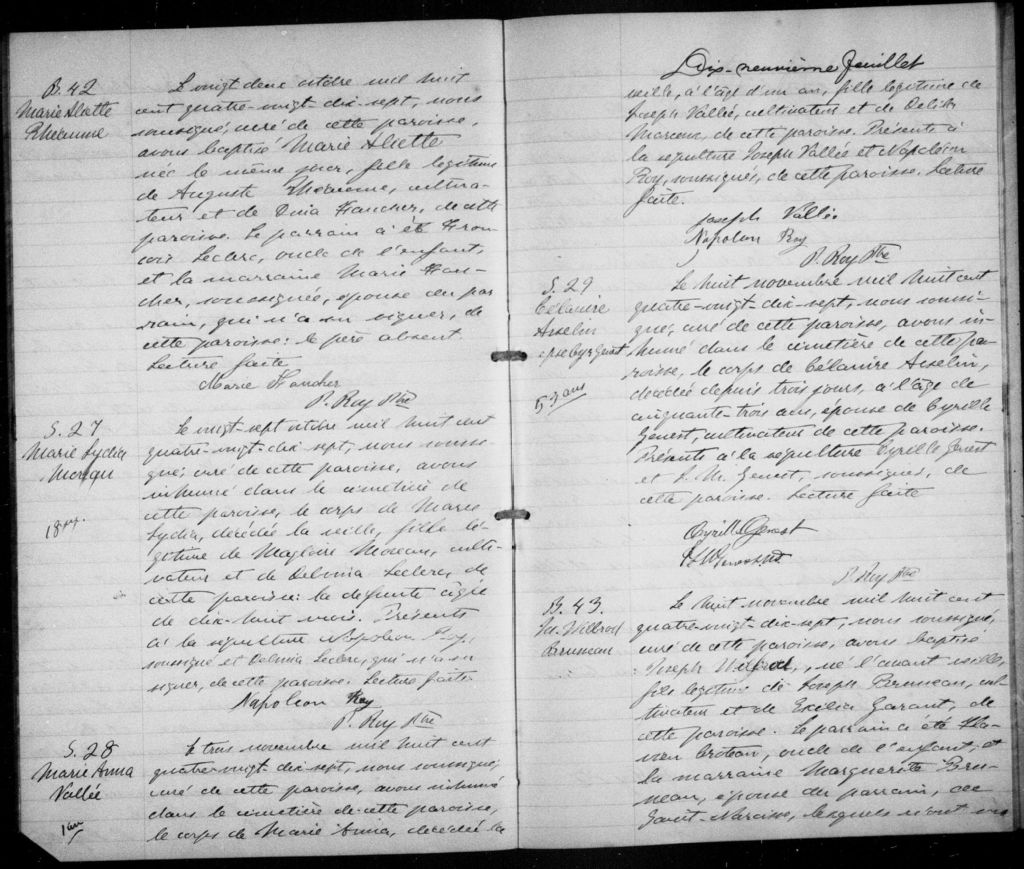 B. 42
Marie Alette
Le vingt deux octobre mil huit
cent quatre-vingt dix-sept, nous
soussigné, curé de cette paroisse,
avons baptisé Marie Alette
née le même jour, fille légitime
de Auguste cultiva-
teur et de Dina Faucher, de cette
paroisse. Le parrain a été Fran-
cois Leclerc, oncle de l'enfant,
et la marraine Marie Fau-
cher, soussignée, épouse du par
rain, qui n'a su signer, de
cette paroisse: le père absent.
Lecture faite
Marie Faucher
P. Roy Ptre
S. 27
Marie Lydia
Moreau
18
Le vingt-sept octobre mil huit cent
quatre-vingt dix-sept, nous souss-
igné, curé de cette paroisse, avons
inhumé dans le cimetière de
cette paroisse, le corps de Marie
Lydia, décédée la veille, fille lé-
gitime de Magloire Moreau, culti-
vateur et de Delvina Leclerc, de
cette paroisse: la defunte âgée
de dix-huit mois. Présents
à la sépulture Napoléon Roy,
soussigné et Delvina Leclerc, qui n'a su
signer, de cette paroisse. Lecture faite
Napoléon Roy
P. Roy Ptre
S. 28
Marie Anna
Vallée
1 an
Le trois novembre mil huit cent
quatre-vingt dix-sept, nous soussigné,
curé de cette paroisse, avons inhumé
dans le cimetière de cette paroisse,
le corps de Marie Anna, décédée la
Dix-neuvième feuillet
veille, à l'âge d'un an, fille légitime de
Joseph Vallée, cultivateur et de
Marcoux, de cette paroisse. Présents à
la sépulture Joseph Vallée et Napoléon
Roy, soussignés, de cette paroisse. Lecture
faite.
Joseph Vallée
Napoléon Roy
P. Roy Ptre
S. 29
Célanire
Asselin
epse Cyr. Genest
53 ans
Le huit novembre mil huit cent
quatre-vingt-dix-sept, nous soussi-
gné, curé de cette paroisse, avons in-
humé dans le cimetière de cette pa-
roisse, le corps de Célanire Asselin,
décédée depuis trois jours, à l'âge de
cinquante-trois ans, épouse de Cyrille
Genest, cultivateur de cette paroisse.
Présents à la sépulture Cyrille Genest
et L. M. Genest, soussignés, de
cette paroisse. Lecture faite
Cyrille Genest
P. Roy Ptre
B. 43.
Bruneau
Le huit novembre mil huit cent
quatre-vingt-dix-sept, nous soussigné,
curé de cette paroisse, avons baptisé
Joseph Wilfrod, né l'avant veille,
fils légitime de Joseph Bruneau, cul-
tivateur et de Exilia Garant, de
cette paroisse. Le parrain a été Fla-
vien Croteau, oncle de l'enfant, et
la marraine Marguerite Bru-
neau, épouse du parrain, de
Saint-Narcisse, lesquels n'ont su